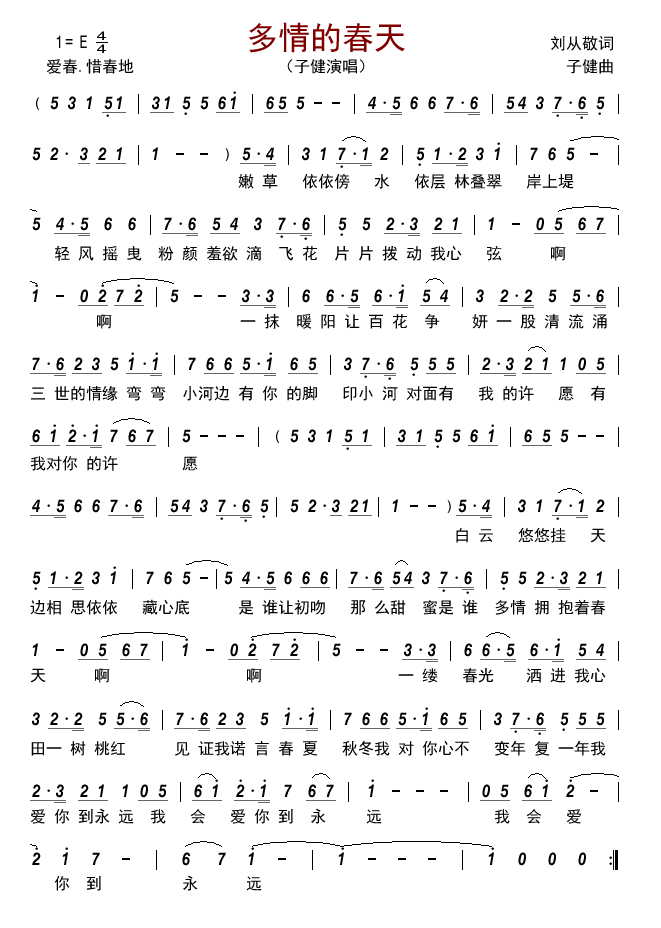 多情的春天
1= E 4/4
刘从敬词
爱春.惜春地
（子健演唱）
子健曲
( 5 3 1 51 | 31 5 5 61 | 65 5 - - | 4·5 6 6 7·6 | 54 3 7·6 5 |
5 2· 3 21 | 1 - - ) 5·4 | 3 1 7·1 2 | 5 1·2 3 1 | 7 6 5 - |
嫩 草 依依傍 水 依层 林叠翠 岸上堤
5 4·5 6 6 | 7·6 54 3 7·6 | 5 5 2·3 21 | 1 - 05 67 |
轻 风 摇 曳 粉 颜 羞欲 滴 飞 花 片 片 拨 动 我心 弦 啊
1 - 02 72 | 5 - - 3·3 | 6 6·5 6·1 54 | 3 2·2 5 5·6 |
啊 一 抹 暖 阳 让 百 花 争 妍 一 股 清 流 涌
7·6 23 5 1·1 | 7 66 5·1 65 | 3 7·6 5 55 | 2·3 21 1 05 |
三 世的情缘 弯 弯 小河边 有 你 的脚 印小 河 对面有 我 的许 愿 有
61 2·1 7 67 | 5 - - - | ( 5 3 1 51 | 31 5 5 61 | 65 5 - - |
我对你 的许 愿
4·5 6 6 7·6 | 54 3 7·6 5 | 5 2·3 21 | 1 - - ) 5·4 | 3 1 7·1 2 |
白 云 悠悠挂 天
5 1·2 3 1 | 7 6 5 - | 5 4·5 6 66 | 7·6 54 3 7·6 | 5 5 2·3 21 |
边相 思依依 藏心底 是 谁让初吻 那 么甜 蜜是 谁 多情 拥 抱着春
1 - 05 67 | 1 - 02 72 | 5 - - 3·3 | 6 6·5 6·1 54 |
天 啊 啊 一 缕 春光 洒 进 我心
3 2·2 5 5·6 | 7·6 23 5 1·1 | 7 66 5·1 65 | 3 7·6 5 55 |
田一 树 桃红 见 证我诺 言 春 夏 秋冬我 对 你心不 变年 复 一年我
2·3 21 1 05 | 61 2·1 7 67 | 1 - - - | 05 61 2 - |
爱 你 到永 远 我 会 爱 你 到 永 远 我 会 爱
2 1 7 - | 6 7 1 - | 1 - - - | 1 0 0 0 :|
你 到 永 远